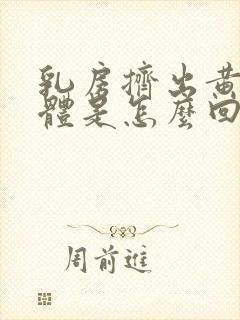 乳房擠出黃
體是怎麼回
周前進